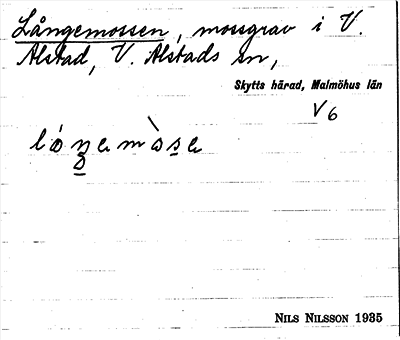 Långemossen, mossgrav i V.
Alstad, V. Alstads sn,
Skytts härad, Malmöhus län
V 6
NILS NILSSON 1935